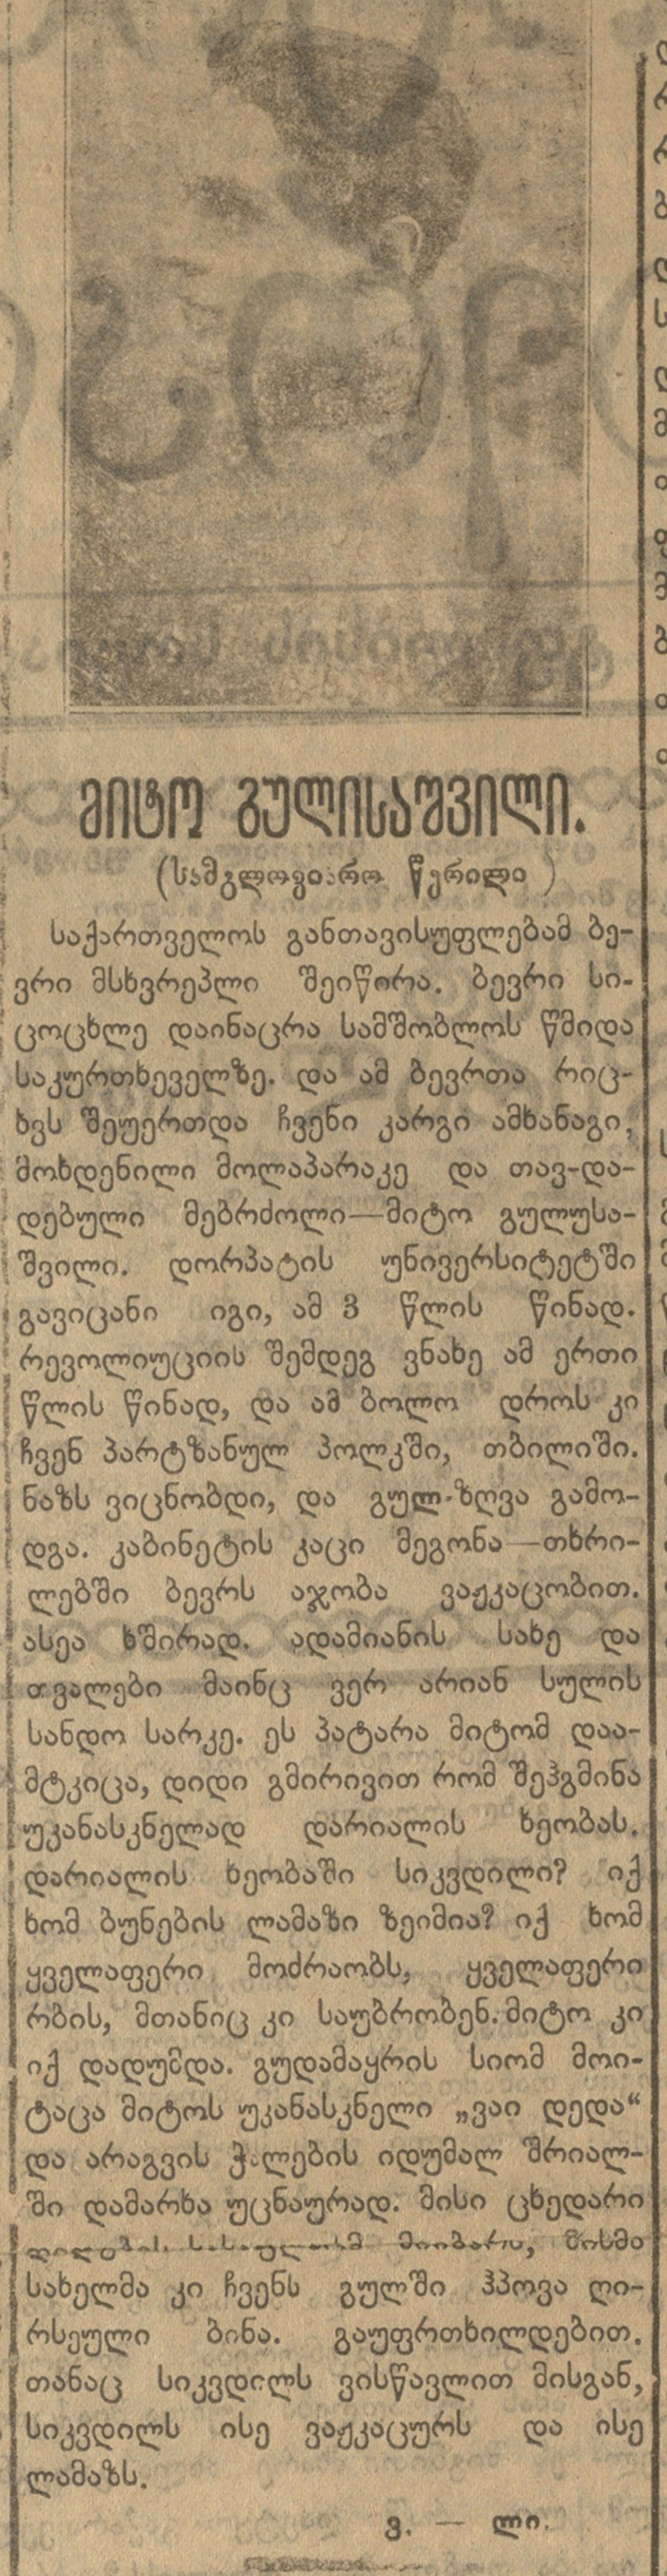 მიტო გულისაშვილი.
(სამგლოვიარო წერილი)
საქართველოს განთავისუფლებამ ბე-
ვრი მსხვრეპლი შეიწირა. ბევრი სი-
ცოცხლე დაინაცრა სამშობლოს წმიდა
საკურთხეველზე. და ამ ბევრთა რიც-
ხვს შეუერთდა ჩვენი კარგი ამხანაგი,
მოხდენილი მოლაპარაკე და თავ-და-
დებული მებრძოლი—მიტო გულუსა-
შვილი. დორპატის უნივერსიტეტში
გავიცანი იგი, ამ 3 წლის წინად.
რევოლიუციის შემდეგ ვნახე ამ ერთი
წლის წინად, და ამ ბოლო დროს კი
ჩვენ პარტზანულ პოლკში, თბილიში.
ნაზს ვიცნობდი, და გულ-ზღვა გამო-
დგა. კაბინეტის კაცი მეგონა—თხრი-
ლებში ბევრს აჯობა ვაჟკაცობით.
ასეა ხშირად. ადამიანის სახე და
თვალები მაინც ვერ არიან სულის
სანდო სარკე. ეს პატარა მიტომ დაა-
მტკიცა, დიდი გმირივით რომ შეჰგმინა
უკანასკნელად დარიალის ხეობას.
დარიალის ხეობაში სიკვდილი? იქ
ხომ ბუნების ლამაზი ზეიმია? იქ ხომ
ყველაფერი მოძრაობს, ყველაფერი
რბის, მთანიც კი საუბრობენ. მიტო კი
იქ დადუმდა. გუდამაყრის სიომ მოი-
ტაცა მიტოს უკანასკნელი „ვაი დედა“
და არაგვის ჭალების იდუმალ შრიალ-
ში დამარხა უცნაურად. მისი ცხედარი
მიიბარა, მისმა
სახელმა კი ჩვენს გულში ჰპოვა ღი-
რსეული ბინა. გაუფრთხილდებით.
თანაც სიკვდილს ვისწავლით მისგან,
სიკვდილს ისე ვაჟკაცურს და ისე
ლამაზს.
ვ. — ლი.